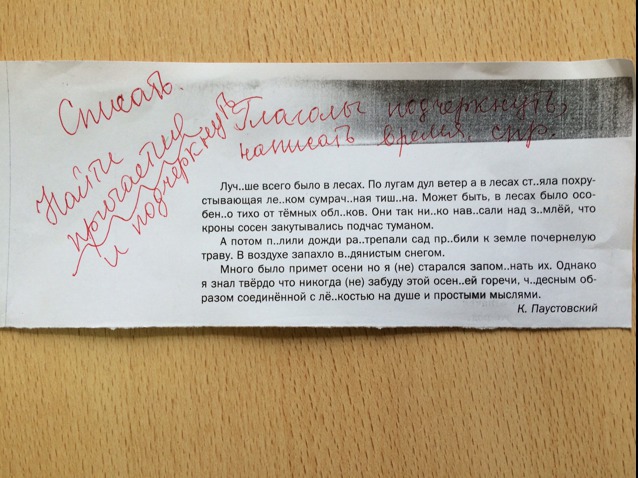 Списать.
Найти
причастия
и подчеркнуть
Глаголы подчеркнуть,
написать время, спр.
Луч..ше всего было в лесах. По лугам дул ветер а в лесах ст..яла похру-
стывающая ле..ком сумрач..ная тиш..на. Может быть, в лесах было осо-
бен..о тихо от тёмных обл..ков. Они так ни..ко нав..сали над з..млёй, что
кроны сосен закутывались подчас туманом.
А потом п..лили дожди ра..трепали сад пр..били к земле почернелую
траву. В воздухе запахло в..дянистым снегом.
Много было примет осени но я (не) старался запом..нать их. Однако
я знал твёрдо что никогда (не) забуду этой осен..ей горечи, ч..десным об-
разом соединённой с лё..костью на душе и простыми мыслями.
К. Паустовский